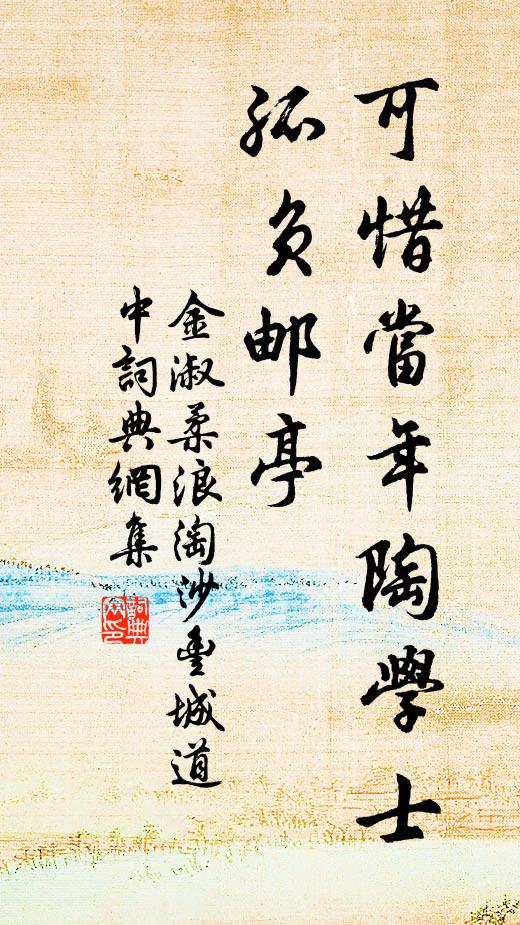 可惜當年陶學士
孤負邮亭
金淑柔浪淘沙豊城道
中詞典網集
詞典